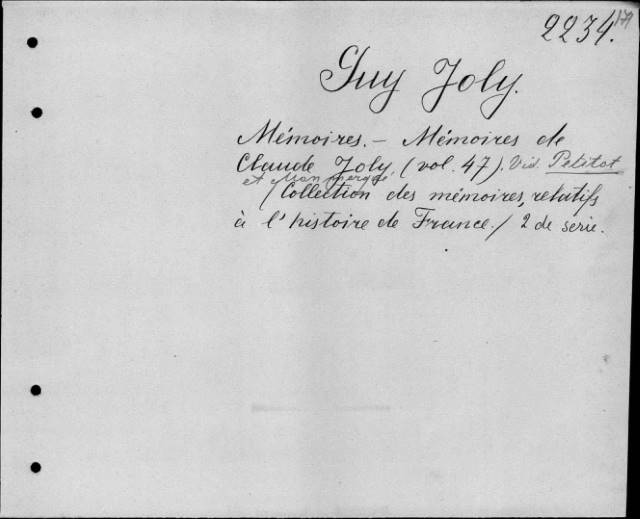 2234.
Guy Joly.
Mémoires. — Mémoires de
Claude Joly, (vol. 47). Vid. Petitot
et Monmerqué
/Collection des mémoires, relatifs
à l'histoire de France./ 2 de serie.